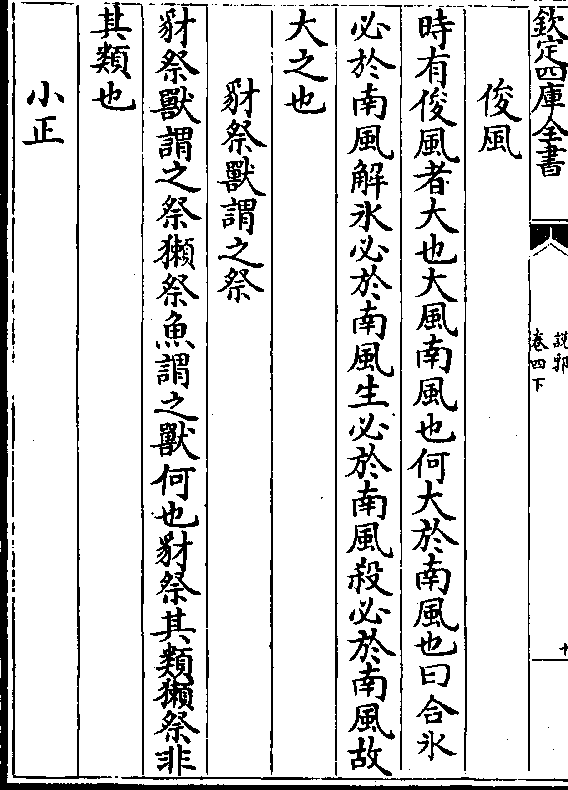 欽定四庫全書
說郛
卷四下
俊風
時有俊風者大也大風南風也何大於南風也曰合氷
必於南風解氷必於南風生必於南風殺必於南風故
大之也
豺祭獸謂之祭
豺祭獸謂之祭獺祭魚謂之獸何也豺祭其類獺祭非
其類也
小正